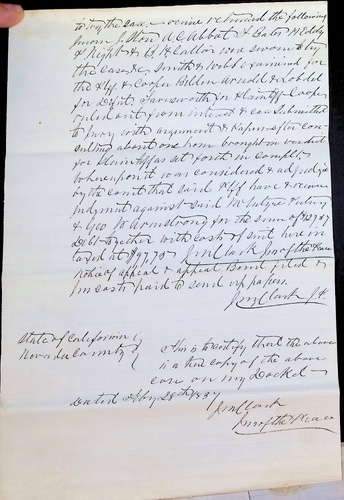 to try the case. venire returned the following
Jurors J. Stone A C Abbot & Cater H Eddy
& Night & B. H Cattor were sworn to try
the case & Smith & Webb examined for
the Plff & Cooper Belden Arnold & Lobdel
for Defts. Farnsworth for Plaintiff Cooper
ruled out from interest & case Submitted
to Jury with argument & Papers after con
sulting about one hour brought in verdict
for Plaintiff as set forth in complt
Whereupon it was considered & adjudged
by the court that said Plff have & recover
Judgment against said McIntyre
& Geo W Armstrong for the sum of
Debt together with cost of suit here in
taxed at $97,75 J M Clark Jus of the Peace
Notice of appeal & appeal Bond filed &
Jus costs paid to send up papers.
J M Clark J.P.
State of California
Nevada County
This is to certify that the above
is a true copy of the above
case on my Docket
Dated Feby 28th 1857
J M Clark
Jus of the Peace